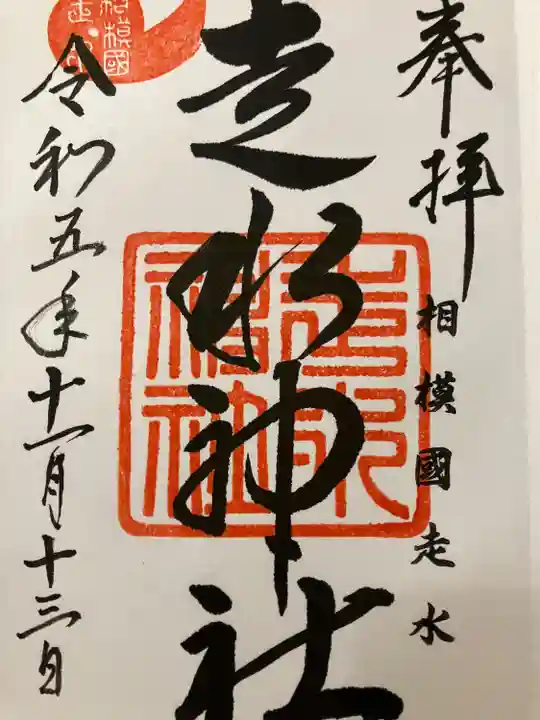 奉拝
相模國走水
走水神社
走水神社
令和五年十一月十三日
相模國